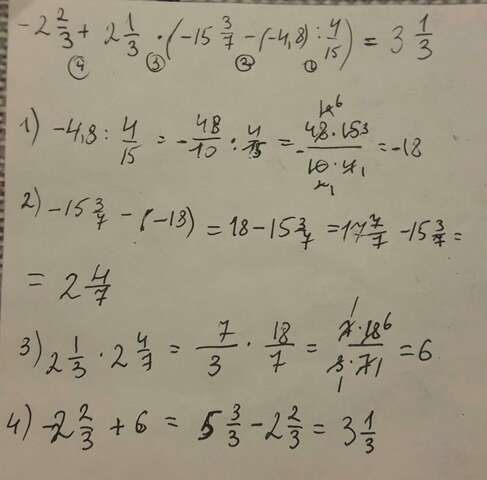 -2 2/3 + 2 1/3 · (-15 3/7 - (-4,8) : 4/15) = 3 1/3
④ ③ ② ①
1) -4,8 : 4/15 = - 48/10 : 4/15 = - 48·15/10·4 = -18
2) -15 3/7 - (-18) = 18 - 15 3/7 = 17 7/7 - 15 3/7 =
= 2 4/7
3) 2 1/3 · 2 4/7 = 7/3 · 18/7 = 7·18/3·7 = 6
4) -2 2/3 + 6 = 5 3/3 - 2 2/3 = 3 1/3